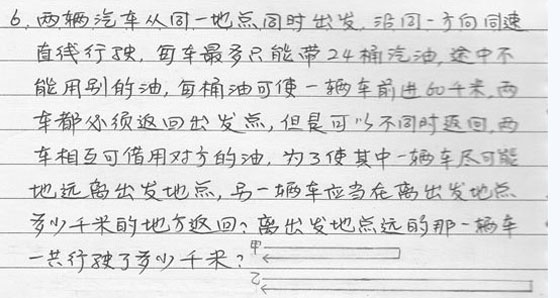 6. 两辆汽车从同一地点同时出发,沿同一方向同速
直线行驶,每车最多只能带24桶汽油,途中不
能用别的油,每桶油可使一辆车前进60千米,两
车都必须返回出发点,但是可以不同时返回,两
车相互可借用对方的油,为了使其中一辆车尽可能
地远离出发地点,另一辆车应当在离出发地点
多少千米的地方返回?离出发地点远的那一辆车
一共行驶了多少千米?
甲
乙